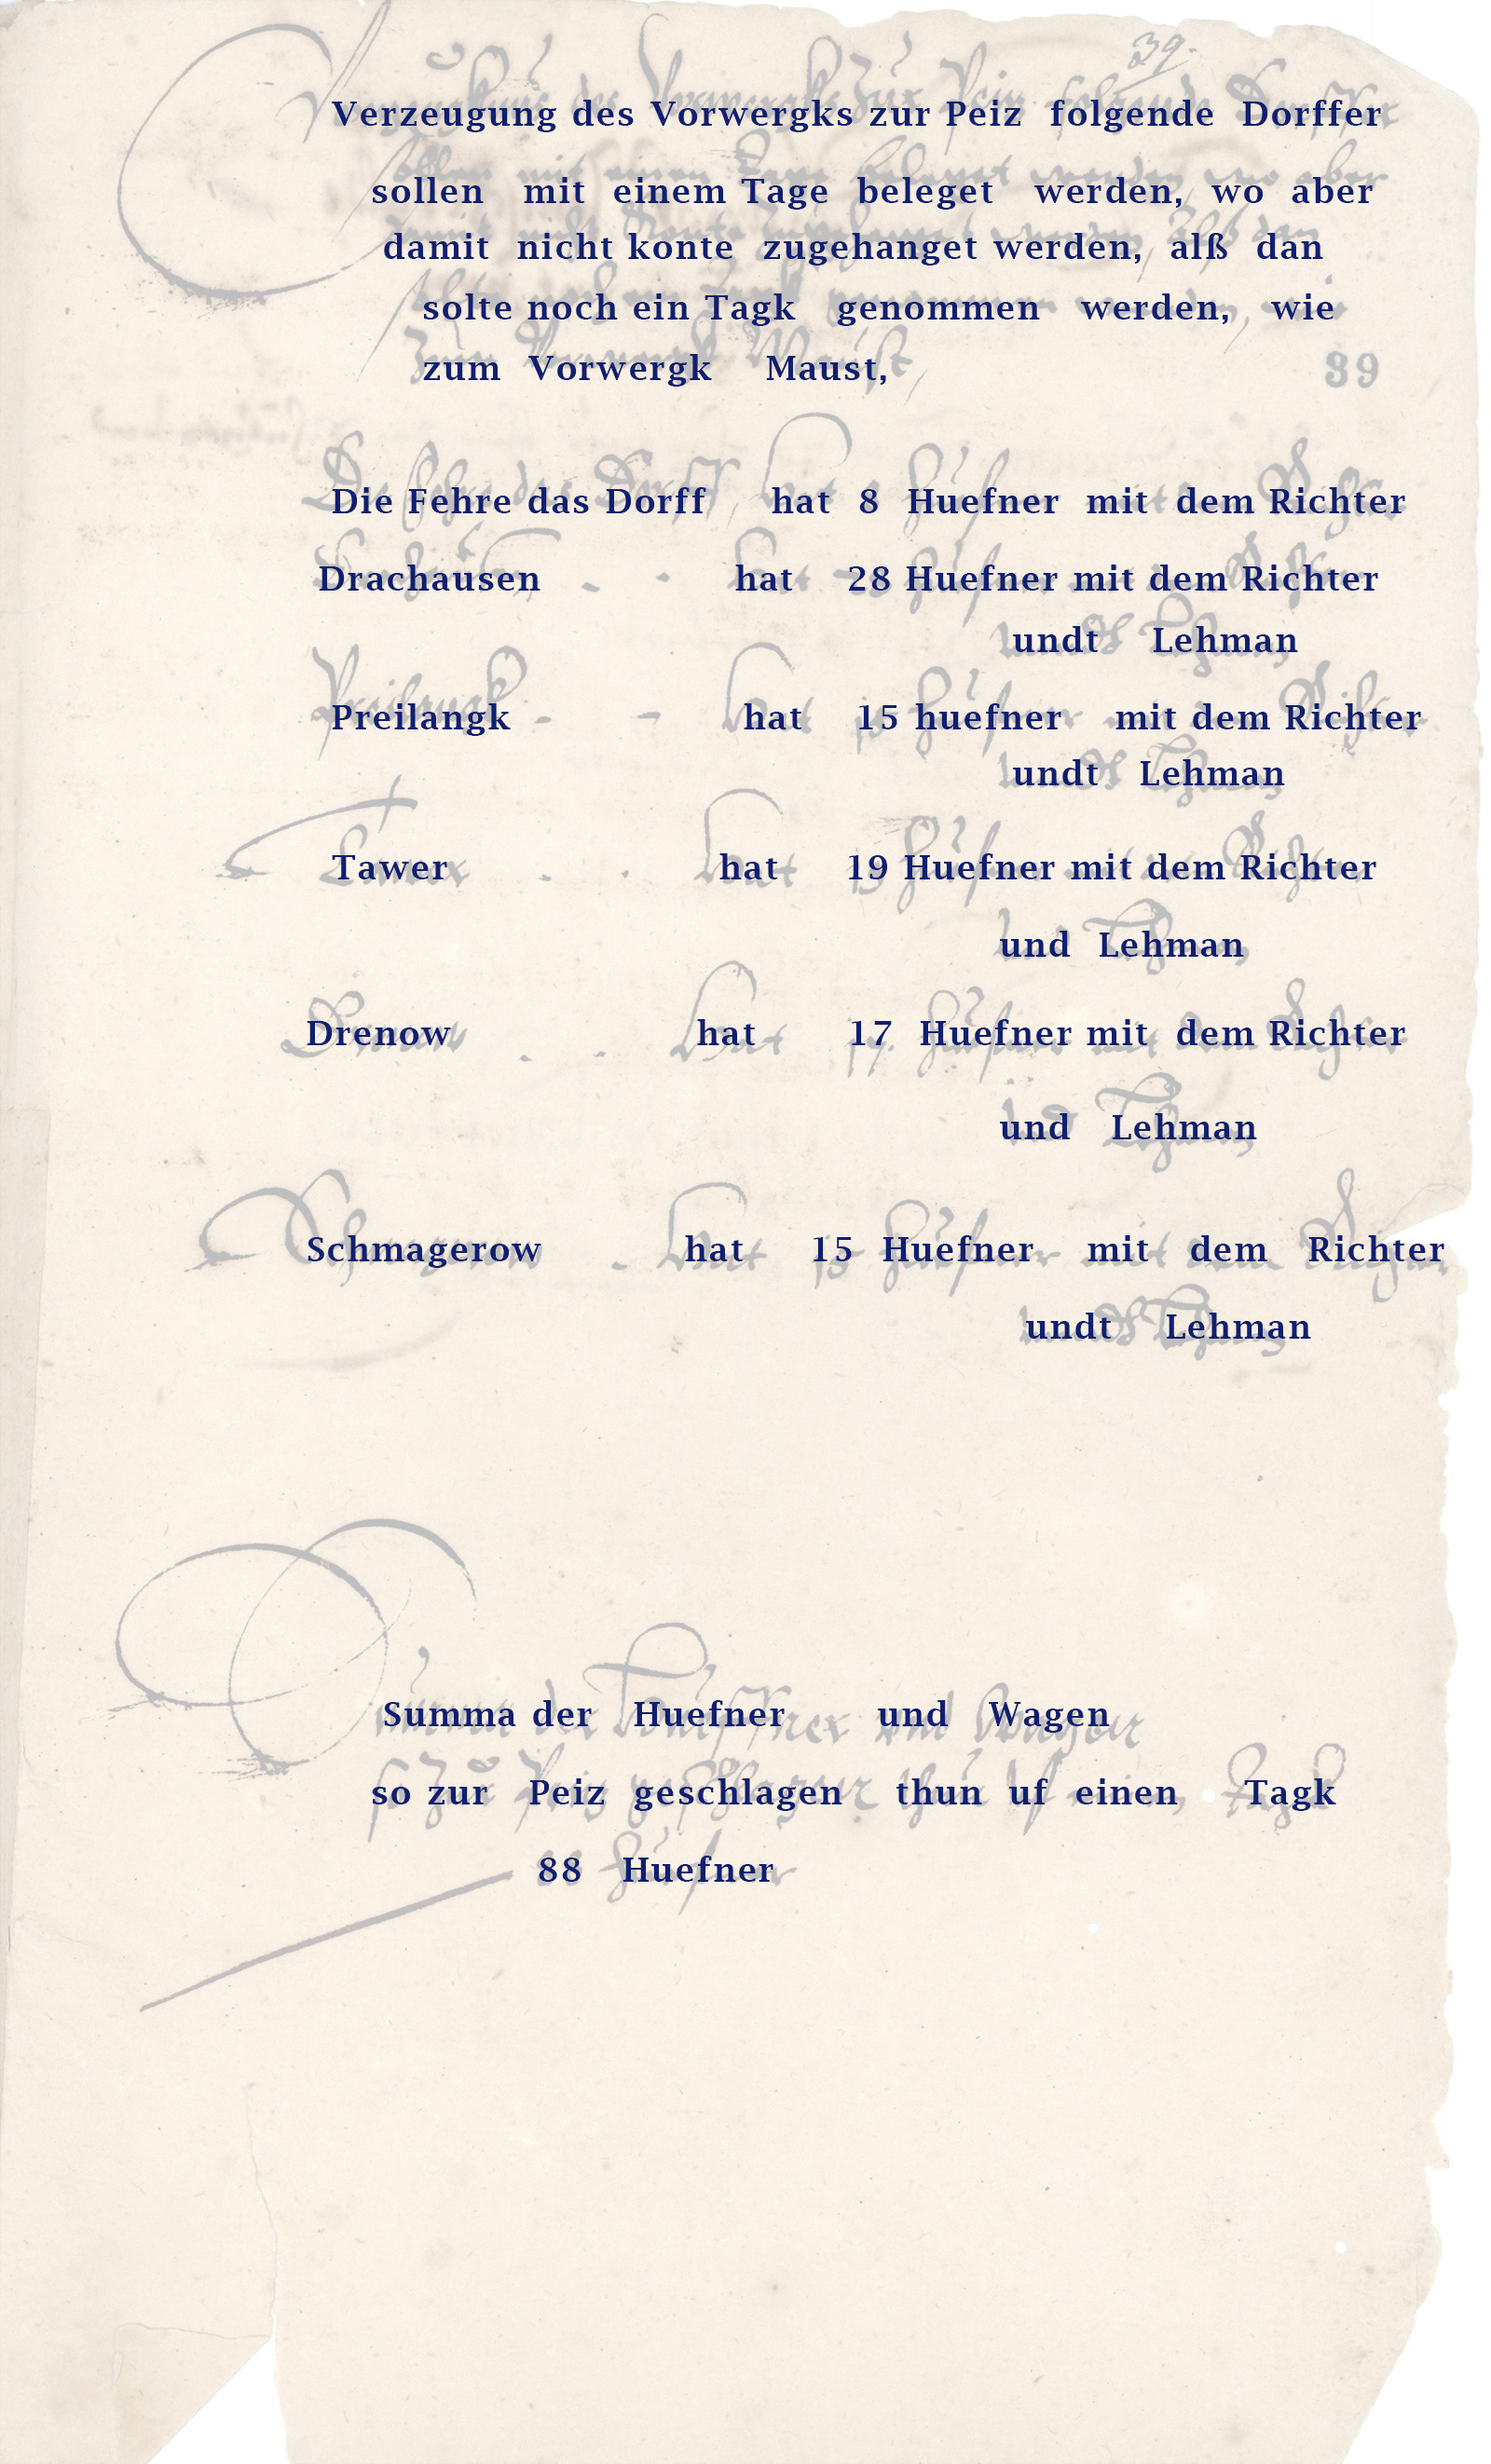 39.
Verzeugung des Vorwergks zur Peiz folgende Dorffer
sollen mit einem Tage beleget werden, wo aber
damit nicht konte zugehanget werden, alß dan
solte noch ein Tagk genommen werden, wie
zum Vorwergk Maust,
39
Die Fehre das Dorff hat 8 Huefner mit dem Richter
Drachausen hat 28 Huefner mit dem Richter
undt Lehman
Preilangk hat 15 huefner mit dem Richter
undt Lehman
Tawer hat 19 Huefner mit dem Richter
und Lehman
Drenow hat 17 Huefner mit dem Richter
und Lehman
Schmagerow hat 15 Huefner mit dem Richter
undt Lehman
Summa der Huefner und Wagen
so zur Peiz geschlagen thun uf einen Tagk
88 Huefner